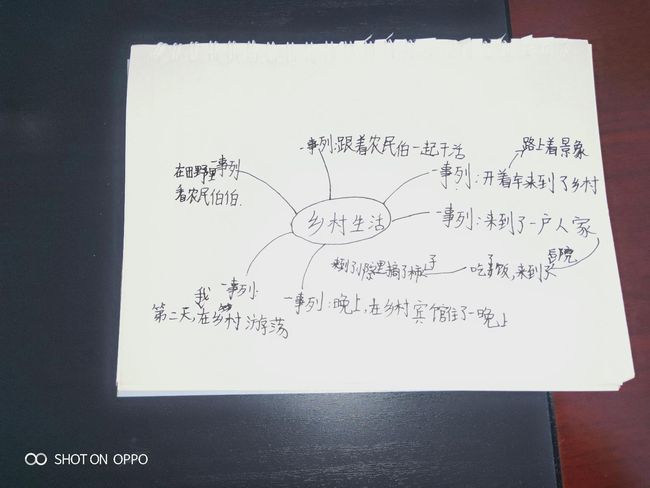 路上着景象
一事列:跟着农民伯一起干活
一事列
在田野里
看农民伯伯.
一事列:开着车来到了乡村
乡村生活
一事列:来到了一户人家
后院
吃了饭,来到了
来到了 院里摘了柿子
一事列:
我
第二天,在乡村游荡
一事列:晚上,在乡村宾馆住了一晚上
SHOT ON OPPO